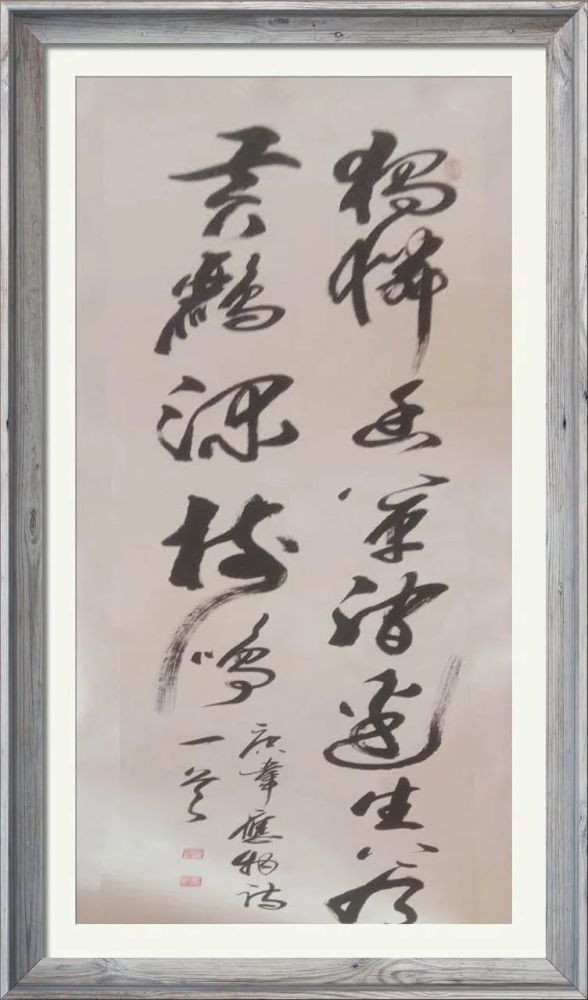 獨憐幽草澗邊生上有
黃鸝深樹鳴
唐韋應物詩
一